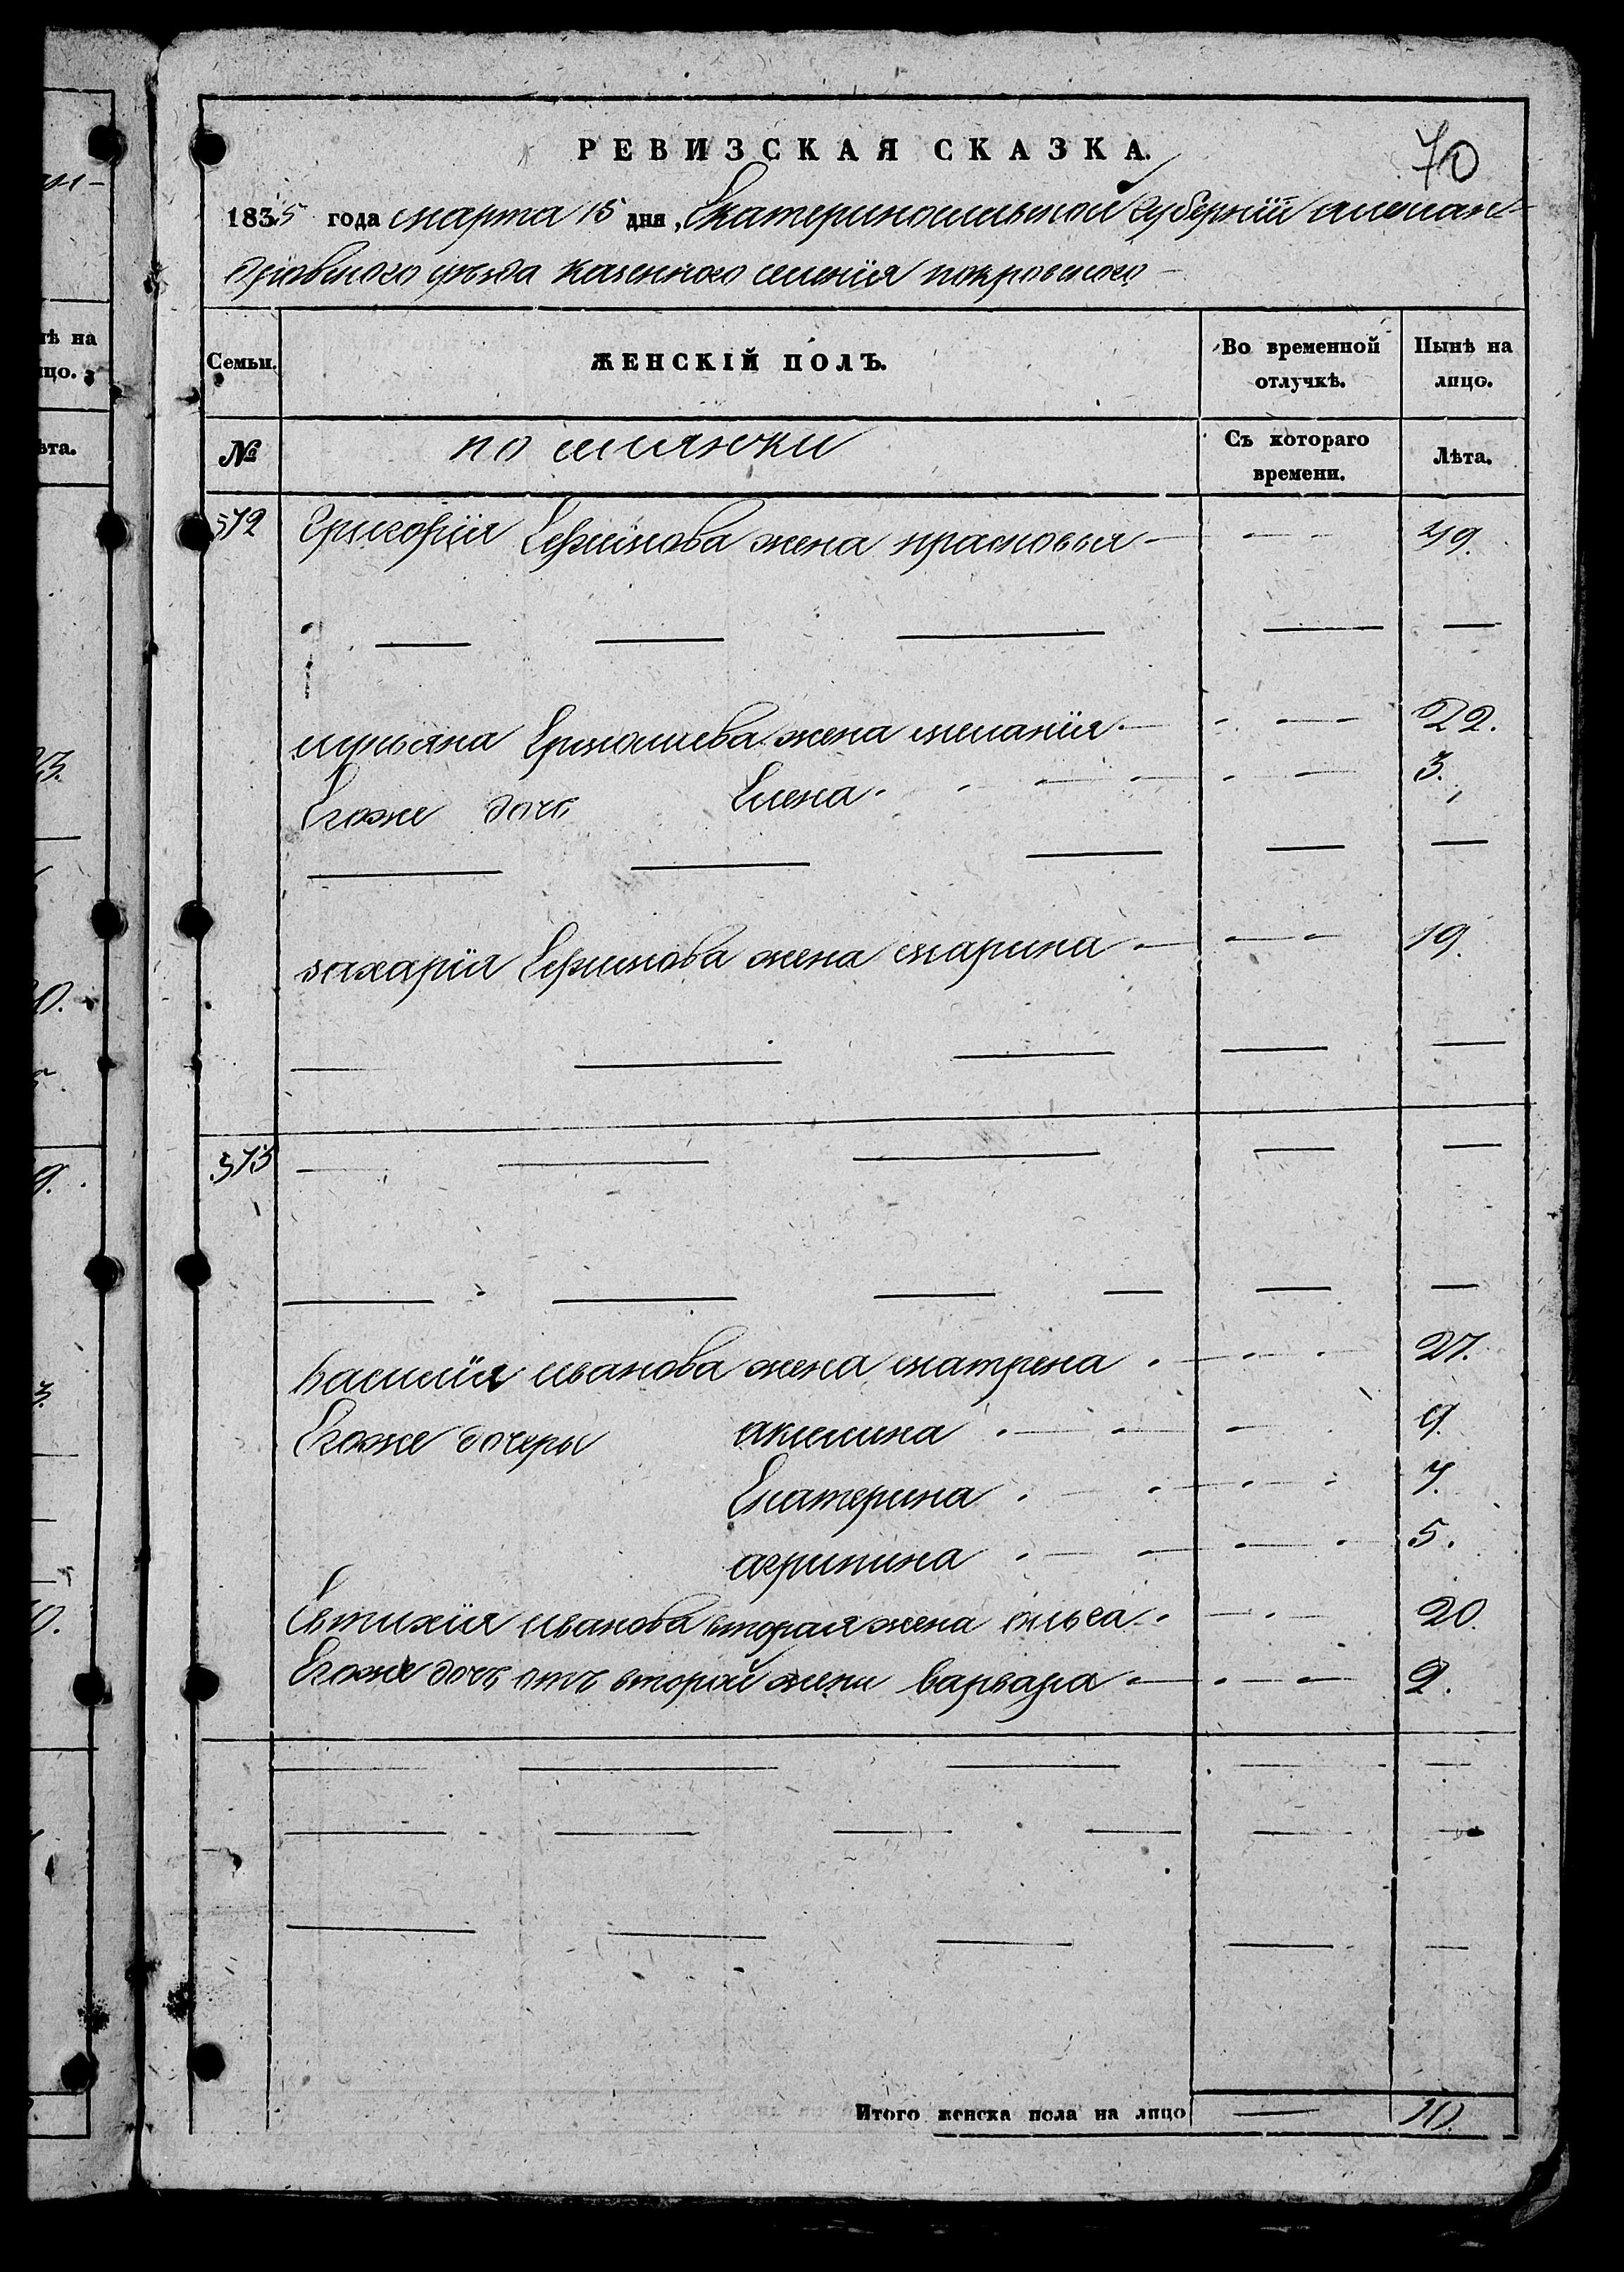 70
РЕВИЗСКАЯ СКАЗКА.
1835 года марта 15 дня, Екатеринославской губерніи алексан-
дровского уезда казенного селенія покровского
Семьи. ЖЕНСКІЙ ПОЛЪ. Во временной отлучкѣ. Нынѣ на лицо.
№ Съ котораго времени. Лѣта.
572 Григорія Ефимова жена прасковья 49.
лукьяна Ермолаева жена меланія 22.
Егоже дочь Елена 3.
захарія Ефимова жена марина 19.
573
василія иванова жена матрена 27.
Егоже дочеры акилина 9.
Екатерина 7.
агрипина 5.
Евтихія иванова вторая жена ольга 20.
Егоже дочь отъ второй жены варвара 2.
Итого женска пола на лицо 10.
нѣ на
лицо.
ѣта.